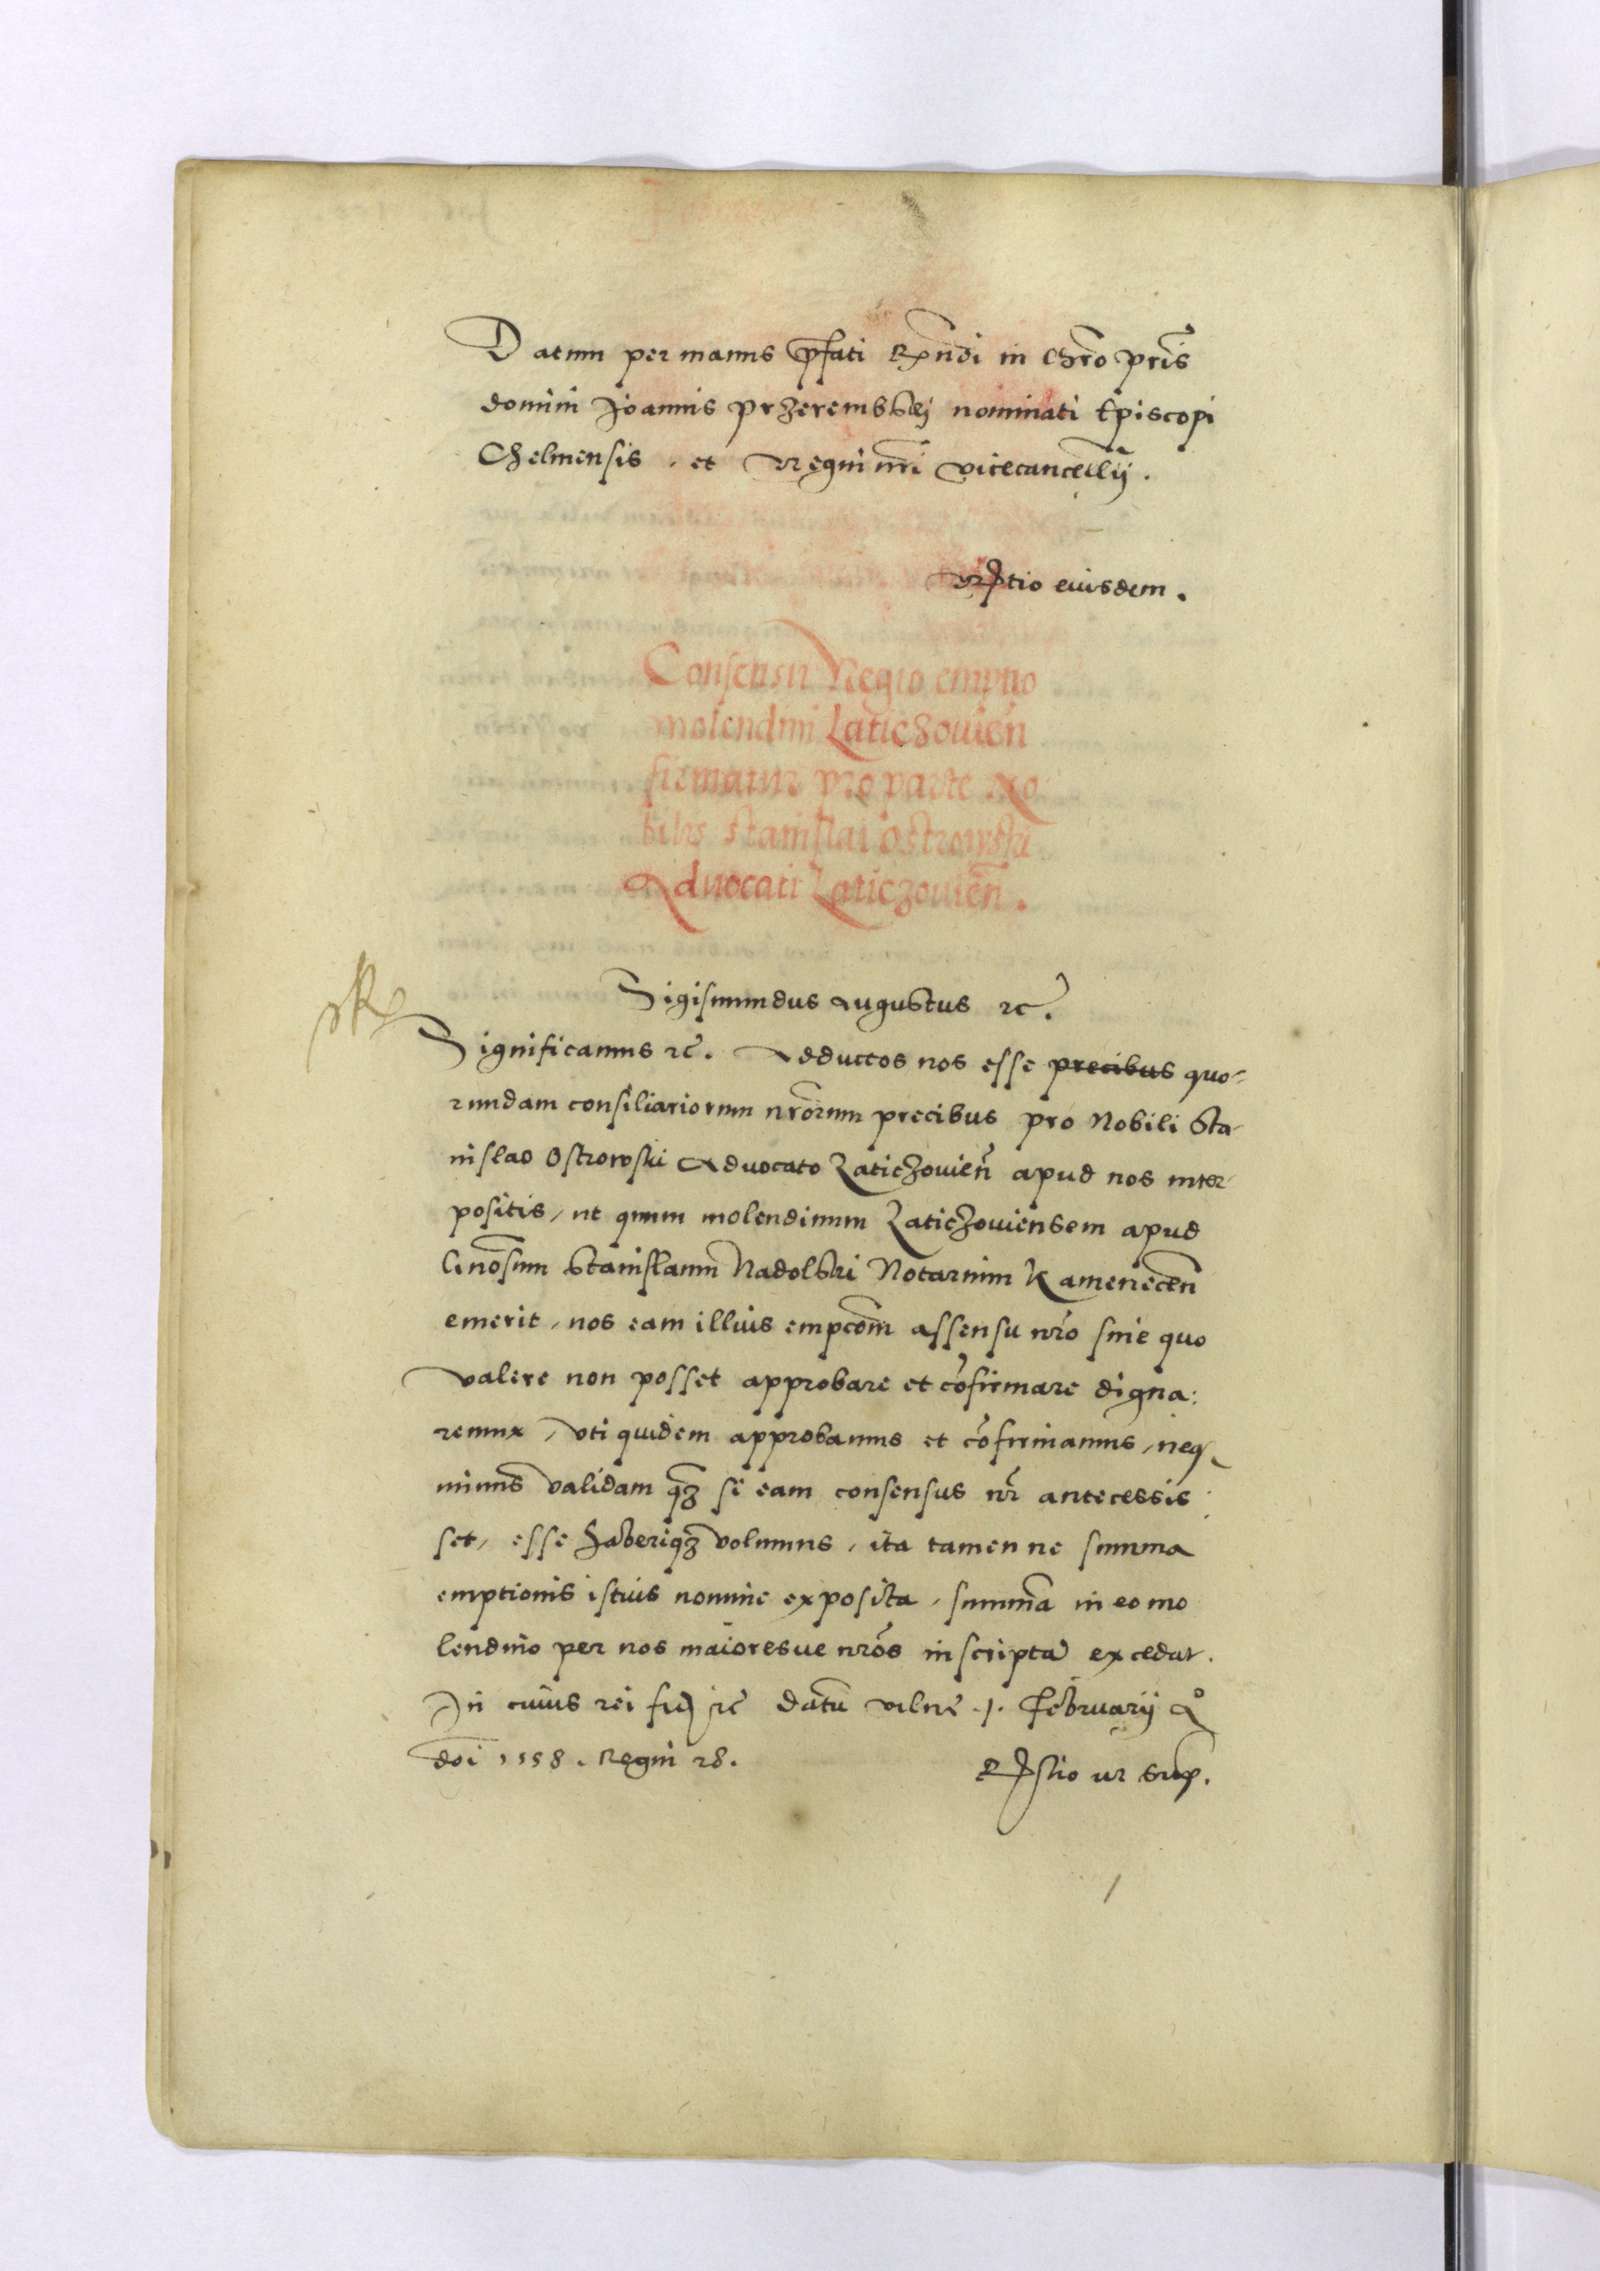 Datum per manus p̄fati Rx̄ndi in Chr̄o pr̄is
domini Joannis Przerembskj nominati Episcopi
Chelmensis, et Regni nr̄i vicecancellȳ.
Rꝑtio eiusdem.
Consensu Regio emptio
molendini Laticzovien̄
firmatur pro parte No
bilis Stanislai Ostrowski
Advocati Laticzovien̄.
Sigismundus Augustus ꝛc̄.
Significamus ꝛc̄. Adductos nos esse precibus quo-
rundam consiliariorum nr̄orum precibus pro Nobili Sta-
nislao Ostrowski Advocato Laticzovien̄ apud nos inter-
positis, ut quum molendinum Laticzoviensem apud
Gn̄osum Stanislaum Nadolski Notarium Kamenecen̄
emerit, nos eam illius empcōm assensu nr̄o sine quo
valere non posset approbare et cōfirmare digna:
remur, uti quidem approbamus et cōfirmamus, neqꝫ
minus validam qꝫ si eam consensus nr̄ antecessis
set, esse haberiqꝫ volumus, ita tamen ne summa
emptionis istius nomine exposita, summā in eo mo
lendino per nos maioresve nr̄os inscriptā excedat.
In cuius rei fid ꝛc̄ datū vilne .1. Februarij Aº
dōi 1558. Regni 28.
Rꝑtio ut sup.